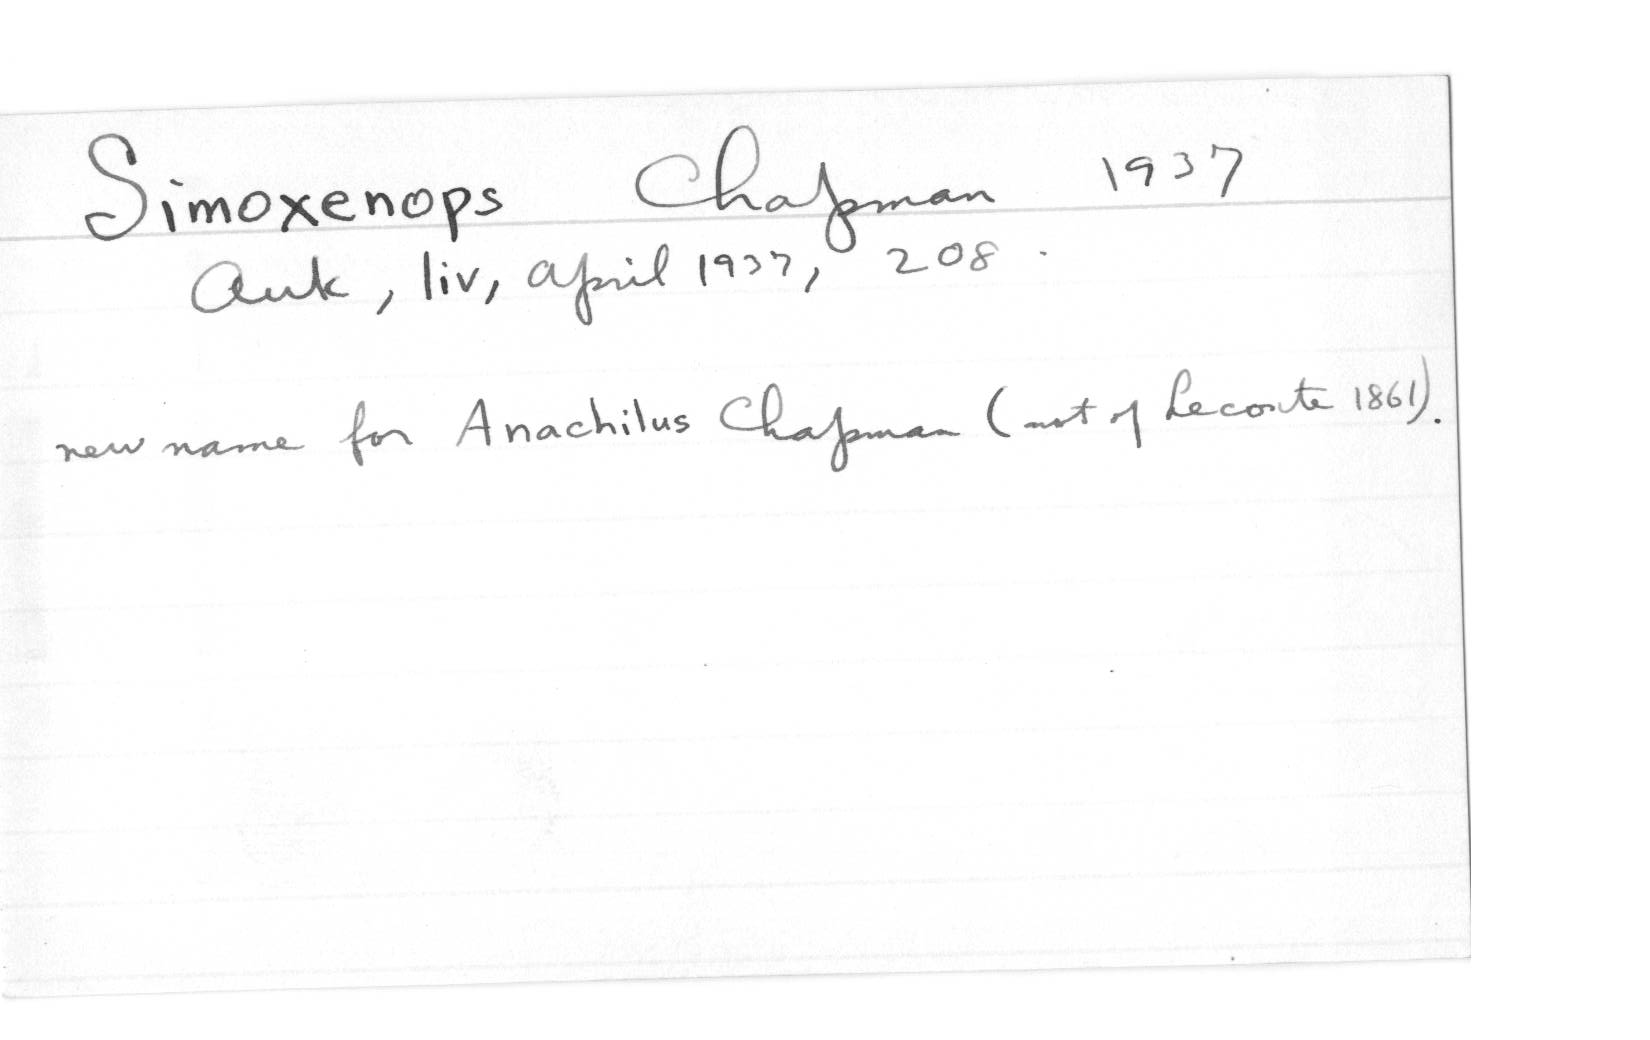 Simoxenops Chapman 1937
Auk, liv, April 1937, 208.
new name for Anachilus Chapman (not of Leconte 1861).